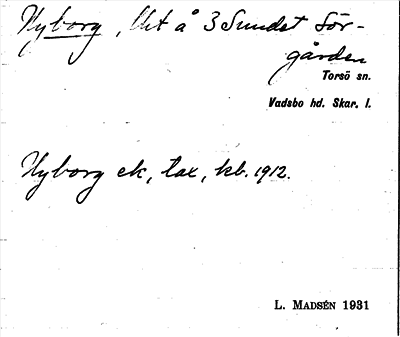 Nyborg, lht å 3 Sundet Sör-
gården
Torsö sn.
Vadsbo hd. Skar. l.
Nyborg ek, tax, kb. 1912.
L. MADSÉN 1931